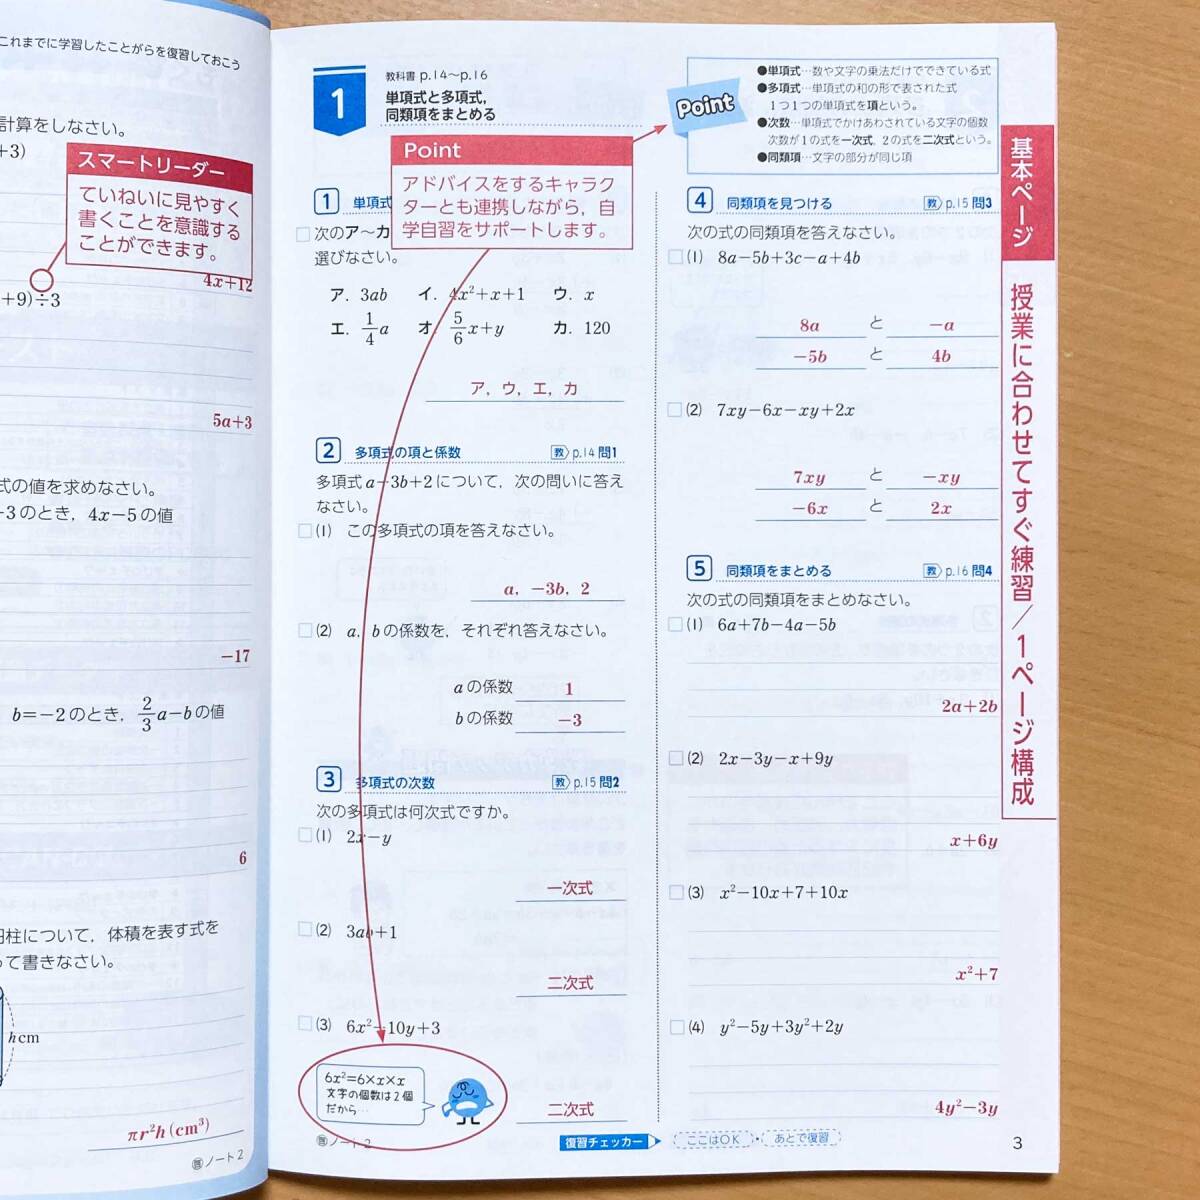 これまでに学習したことがらを復習しておこう
計算をしなさい。
+3)
スマートリーダー
ていねいに見やすく
書くことを意識する
ことができます。
4x+12
+9)÷3
5a+3
式の値を求めなさい。
-3のとき，4x-5の値
-17
b=-2のとき，2/3a-bの値
6
円柱について，体積を表す式を
って書きなさい。
hcm
πr²h(cm³)
ノート2
1
教科書 p.14～p.16
単項式と多項式，
同類項をまとめる
Point
●単項式…数や文字の乗法だけでできている式
●多項式…単項式の和の形で表された式
1つ1つの単項式を項という。
●次数…単項式でかけあわされている文字の個数
次数が1の式を一次式，2の式を二次式という。
●同類項…文字の部分が同じ項
Point
アドバイスをするキャラク
ターとも連携しながら，自
学自習をサポートします。
1 単項式
次のア～カ
選びなさい。
ア．3ab イ．4x²+x+1 ウ．x
エ．1/4a オ．5/6x+y カ．120
ア，ウ，エ，カ
2 多項式の項と係数 教 p.14 問1
多項式a-3b+2について，次の問いに答え
なさい。
(1) この多項式の項を答えなさい。
a，-3b，2
(2) a，bの係数を，それぞれ答えなさい。
aの係数 1
bの係数 -3
3 多項式の次数 教 p.15 問2
次の多項式は何次式ですか。
(1) 2x-y
一次式
(2) 3ab+1
二次式
(3) 6x²-10y+3
6x²=6×x×x
文字の個数は2個
だから…
二次式
ノート2
4 同類項を見つける 教 p.15 問3
次の式の同類項を答えなさい。
(1) 8a-5b+3c-a+4b
8a と -a
-5b と 4b
(2) 7xy-6x-xy+2x
7xy と -xy
-6x と 2x
5 同類項をまとめる 教 p.16 問4
次の式の同類項をまとめなさい。
(1) 6a+7b-4a-5b
2a+2b
(2) 2x-3y-x+9y
x+6y
(3) x²-10x+7+10x
x²+7
(4) y²-5y+3y²+2y
4y²-3y
復習チェッカー ここはOK あとで復習
3
基本ページ
授業に合わせてすぐ練習／1ページ構成